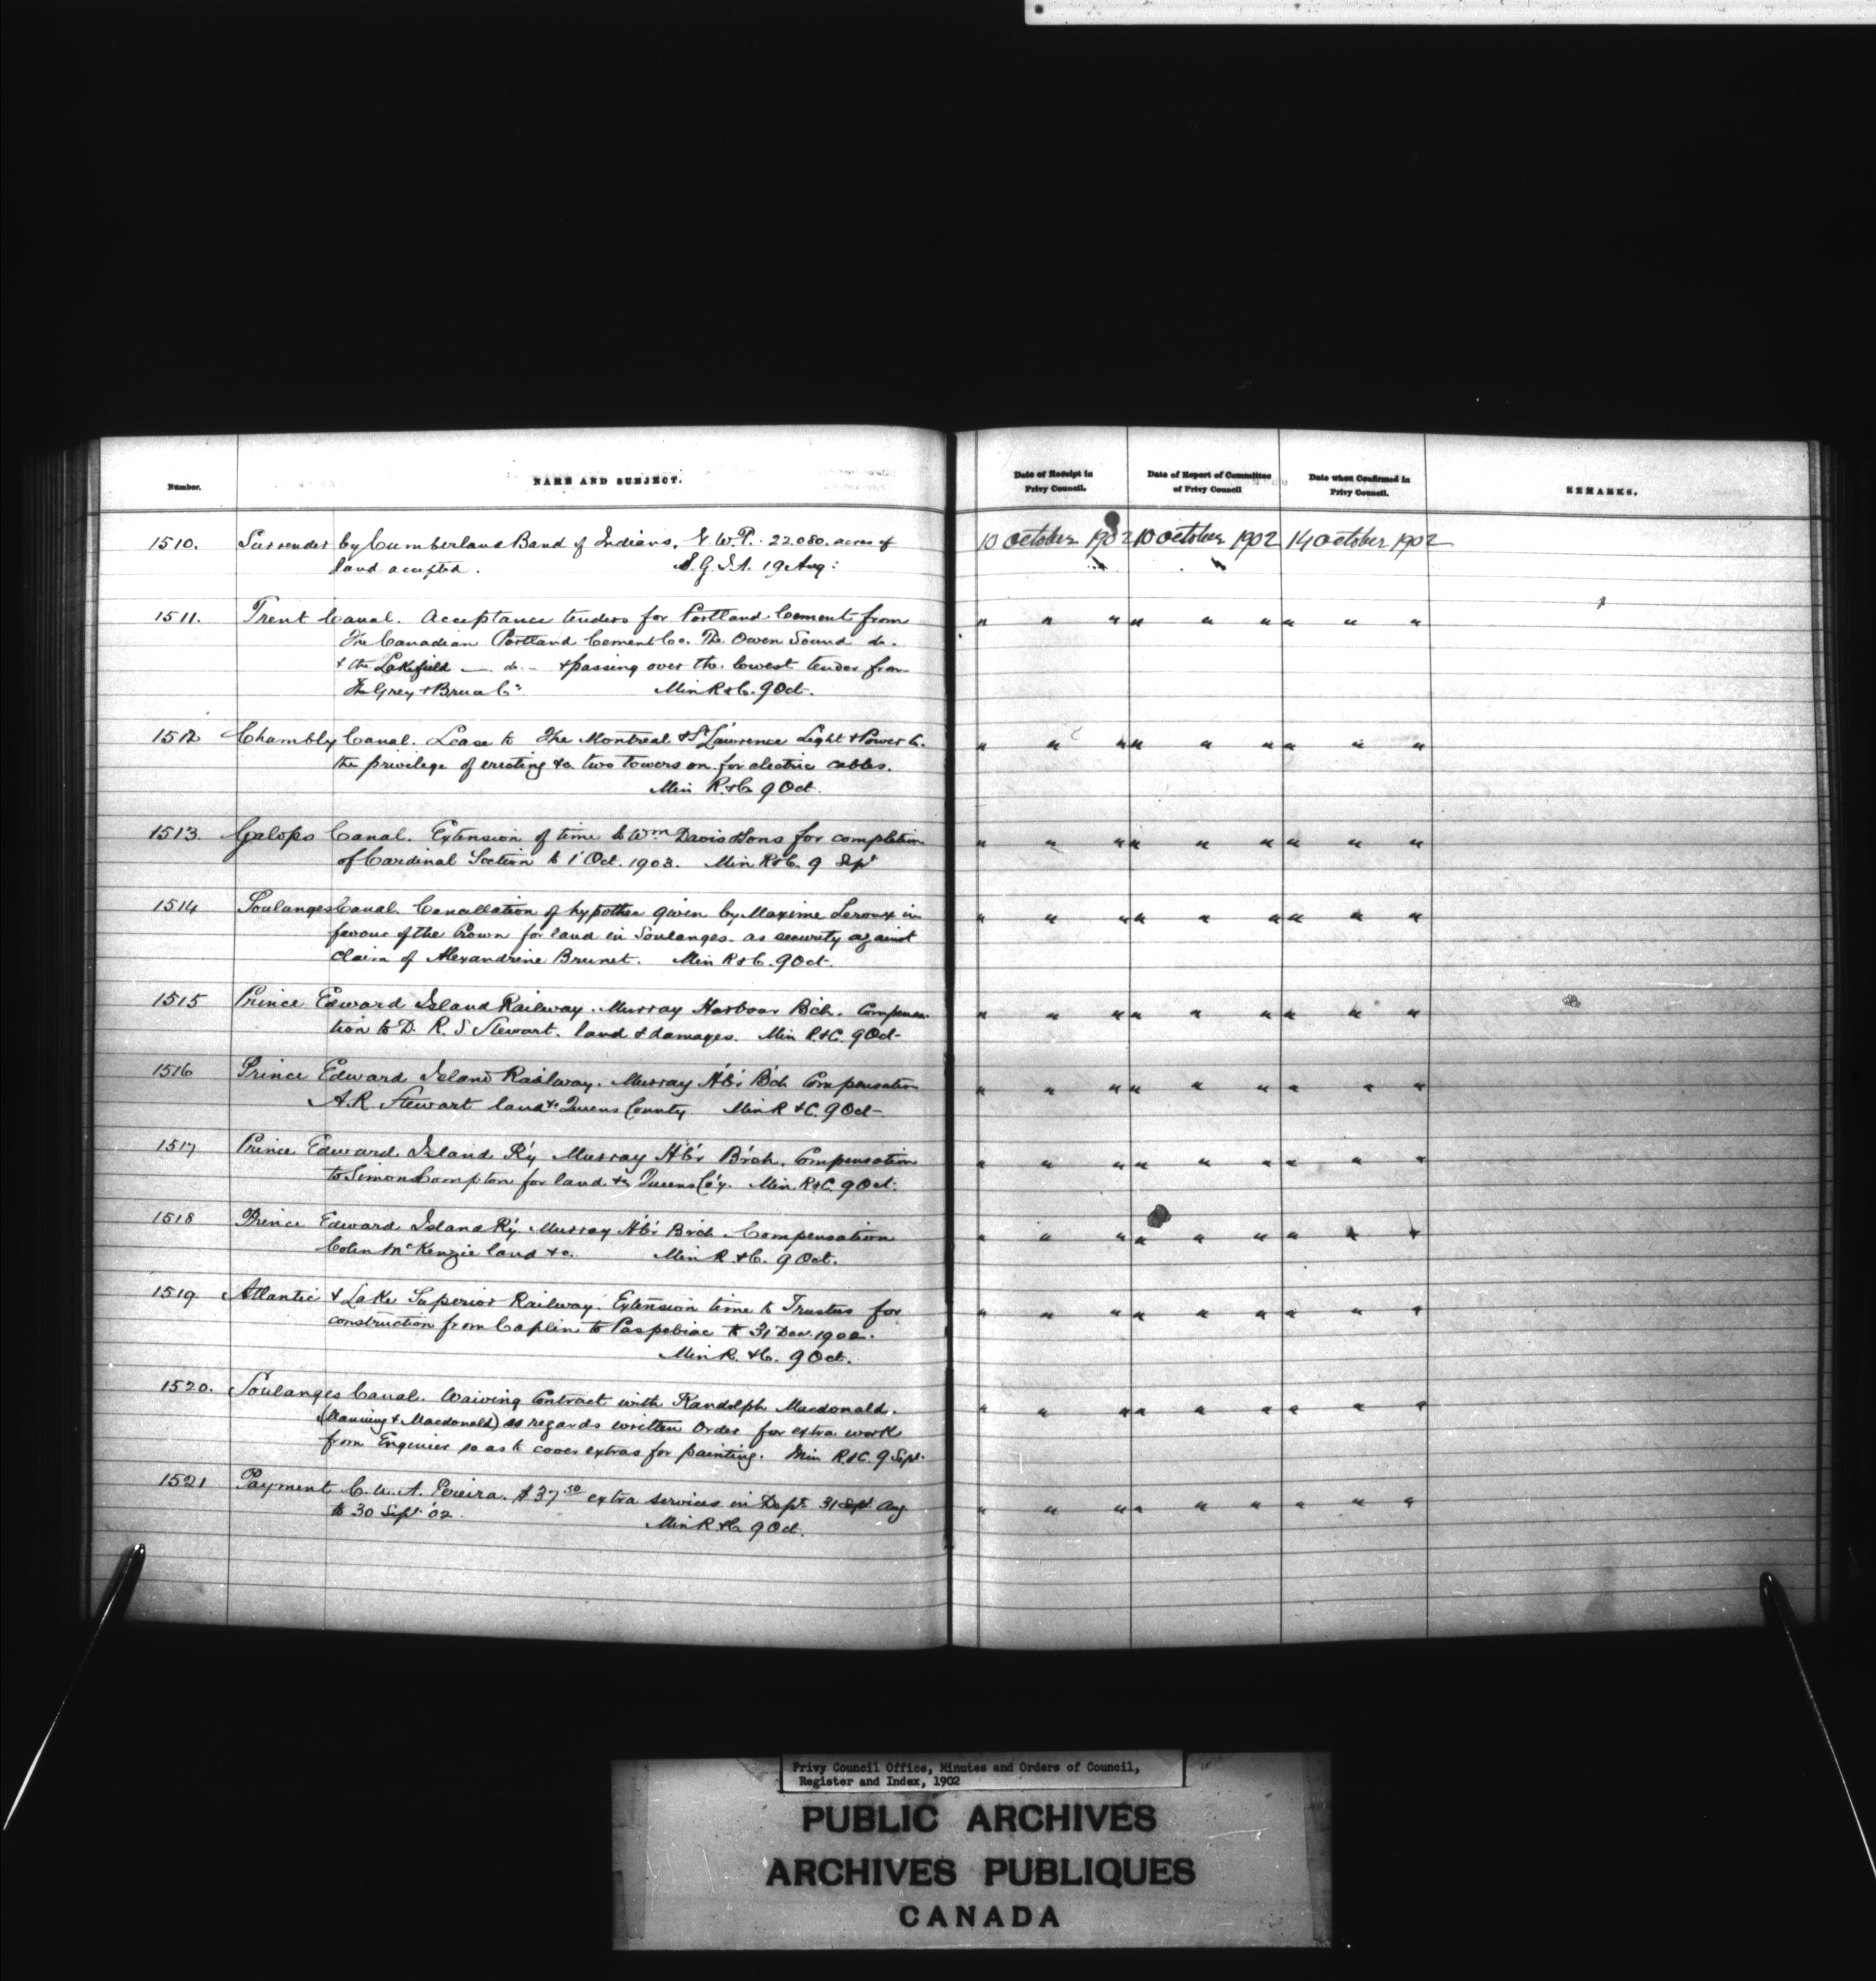 Number.
NAME AND SUBJECT.
Date of Receipt in
Privy Council.
Date of Report of Committee
of Privy Council
Date when Confirmed in
Privy Council.
REMARKS.
1510. Surrender by Cumberland Band of Indians, N.W.T. 22.080. acres of
land accepted. S.G.I.A. 19 Aug:
10 October 1902 10 October 1902 14 October 1902
1511. Trent Canal. Acceptance tenders for Portland Cement from
The Canadian Portland Cement Co. The Owen Sound do.
+ the Lakefield — do. — + passing over the lowest tender from
The Grey + Bruce Co Min R + C. 9 Oct.
" " " " " " " " "
1512 Chambly Canal. Lease to The Montreal + St Lawrence Light + Power Co.
the privilege of erecting &c. two towers on for electric cables.
Min R. + C. 9 Oct.
" " " " " " " " "
1513. Galops Canal. Extension of time to Wm Davis & Sons for completion
of Cardinal Section to 1 Oct. 1903. Min R + C. 9 Sept
" " " " " " " " "
1514 Soulanges Canal. Cancellation of hypothec given by Maxime Leroux in
favour of the Crown for land in Soulanges. as security against
claim of Alexandrine Brunet. Min R + C. 9 Oct.
" " " " " " " " "
1515 Prince Edward Island Railway. Murray Harbour Bch. Compensa-
tion to D. R. S Stewart. land + damages. Min R. + C. 9 Oct-
" " " " " " " " "
1516 Prince Edward Island Railway. Murray H'b'r B'ch Compensation
A.R. Stewart land &c Queens County Min R + C. 9 Oct-
" " " " " " " " "
1517 Prince Edward Island R'y Murray H'b'r B'rch. Compensation
to Simon Compton for land &c Queens Co'y. Min R + C. 9 Oct.
" " " " " " " " "
1518 Prince Edward Island R'y. Murray H'b'r Brch. Compensation
Colin McKenzie land &c. Min R. + C. 9 Oct.
" " " " " " " " "
1519. Atlantic + Lake Superior Railway. Extension time to Trustees for
construction from Caplin to Paspebiac to 31 Dec. 1902.
Min R. + C. 9 Oct.
" " " " " " " " "
1520. Soulanges Canal. Waiving Contract with Randolph Macdonald.
(Manning + Macdonald) as regards written Order for extra work
from Engineer so as to cover extras for painting. Min R. + C. 9 Sept.
" " " " " " " " "
1521 Payment C. W. A. Pereira. $37 50 extra services in Dept. 31 Sept. Aug
to 30 Sept '02. Min R + C 9 Oct.
" " " " " " " " "
Privy Council Office, Minutes and Orders of Council,
Register and Index, 1902
PUBLIC ARCHIVES
ARCHIVES PUBLIQUES
CANADA